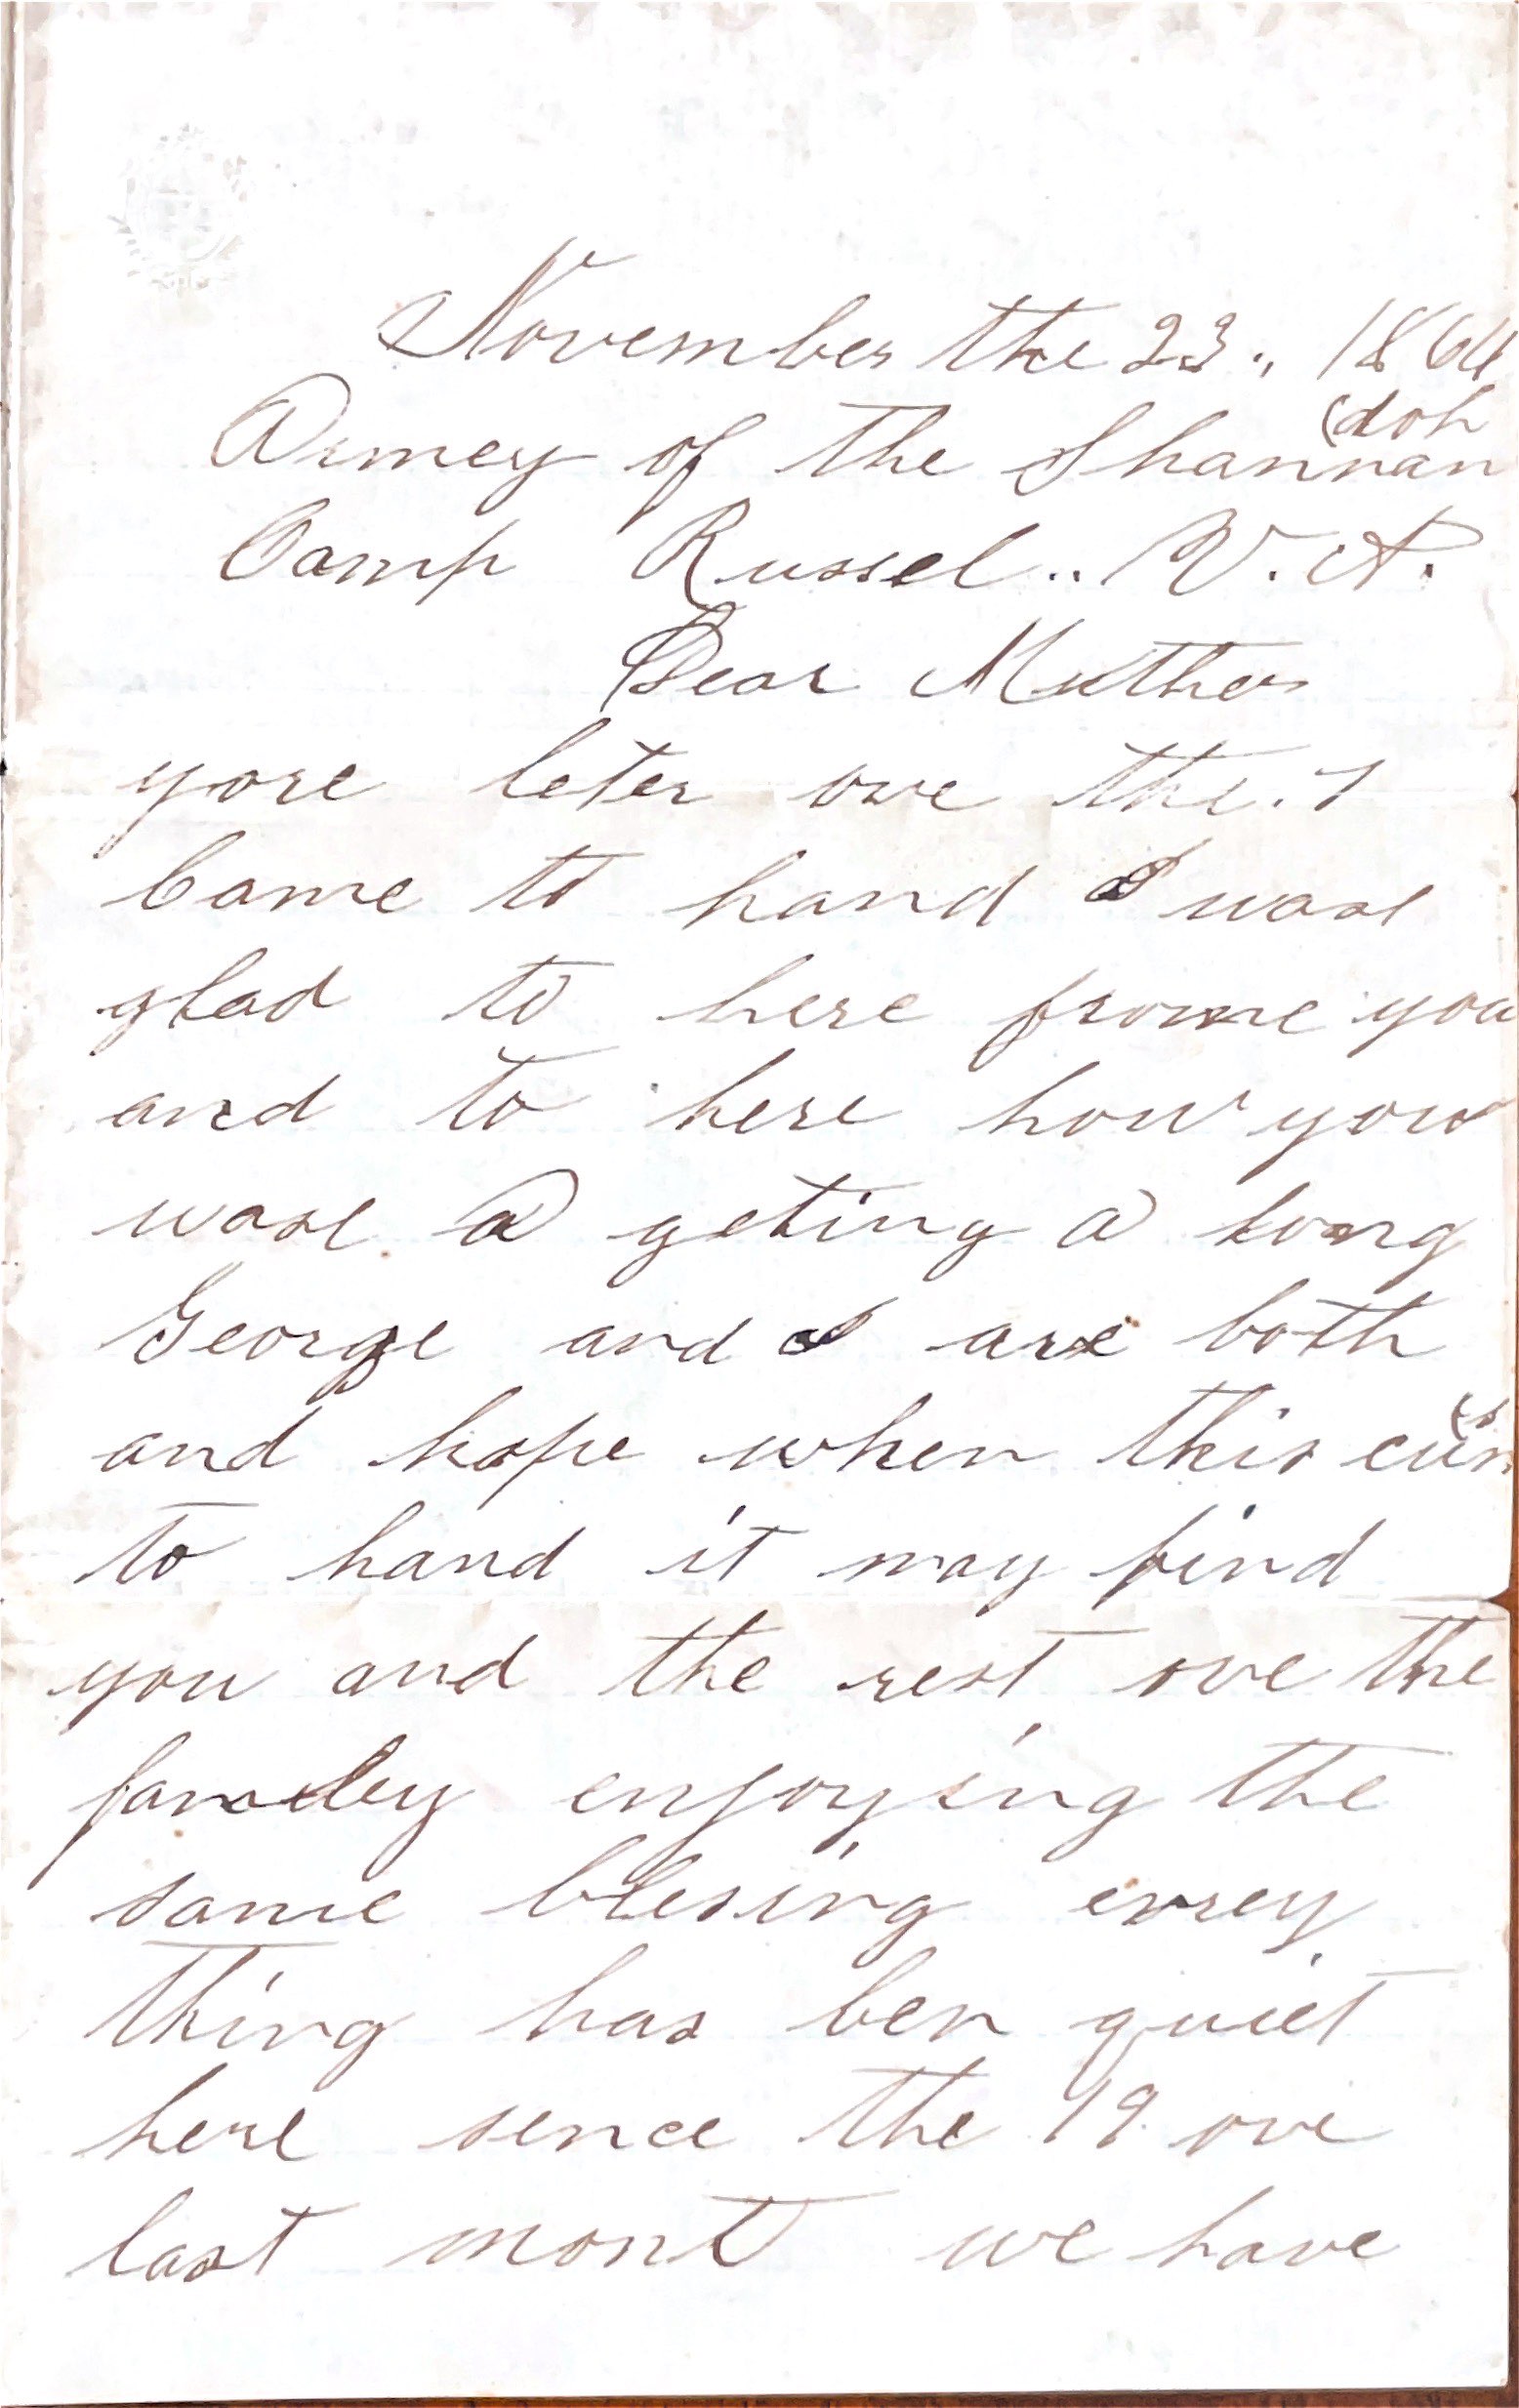 November the 23., 1864
Armey of the Shannan(doh
Camp Russel.. V. A.
Dear Muther
yore leter ove the. 7
Came to hand I wase
glad to here frome you
and to here how you
wase a geting a long
George and I are both
and hope when this cum(s
to hand it may find
you and the rest ove the
famley enjoying the
same blesing evrey
thing has ben quiet
here sence the 19 ove
last mont we have